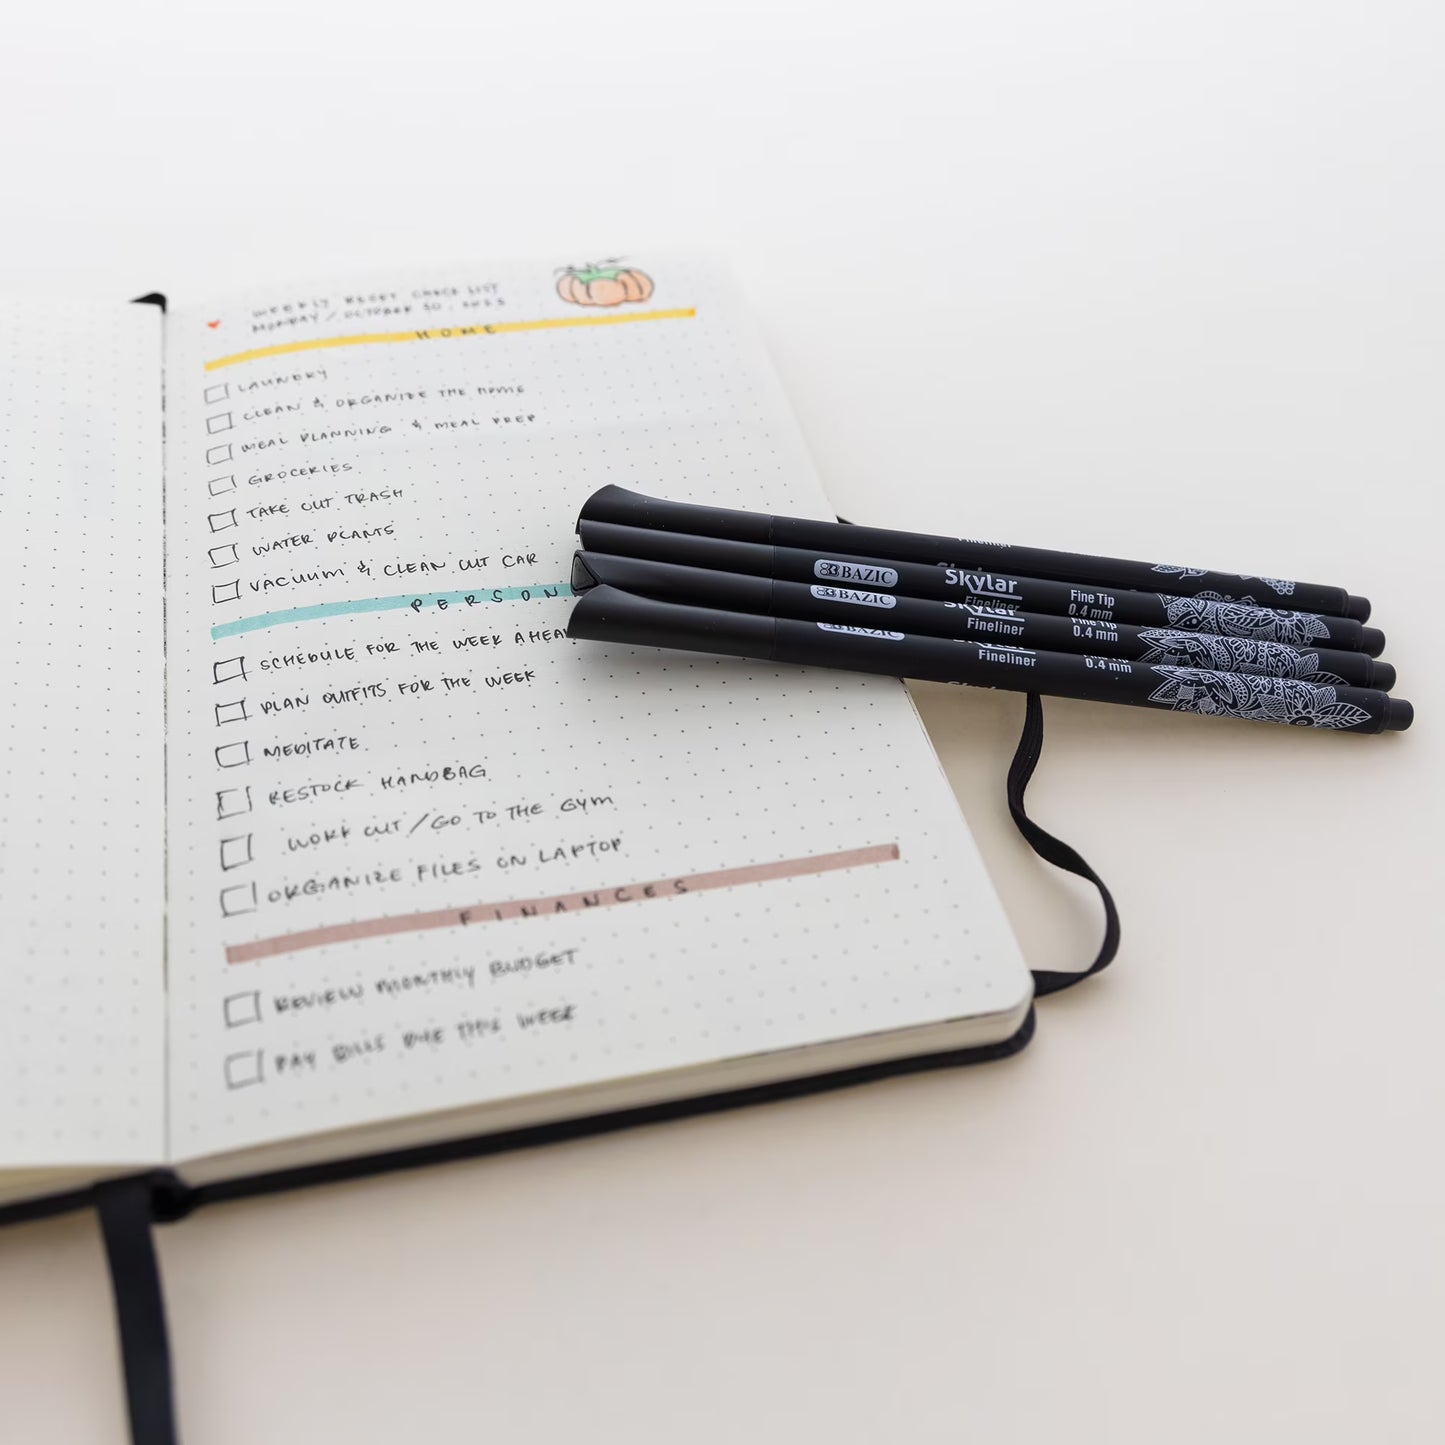 WEEKLY RESET CHECK LIST
MONDAY / OCTOBER 30, 2023
HOME
LAUNDRY
CLEAN & ORGANIZE THE HOME
MEAL PLANNING & MEAL PREP
GROCERIES
TAKE OUT TRASH
WATER PLANTS
VACUUM & CLEAN OUT CAR
PERSON
SCHEDULE FOR THE WEEK AHEA
PLAN OUTFITS FOR THE WEEK
MEDITATE
RESTOCK HANDBAG
WORK OUT/GO TO THE GYM
ORGANIZE FILES ON LAPTOP
FINANCES
REVIEW MONTHLY BUDGET
PAY BILLS DUE THIS WEEK
Fineliner
BAZIC Skylar Fineliner Fine Tip 0.4 mm
BAZIC Skylar Fineliner Fine Tip 0.4 mm
BAZIC Skylar Fineliner Fine Tip 0.4 mm